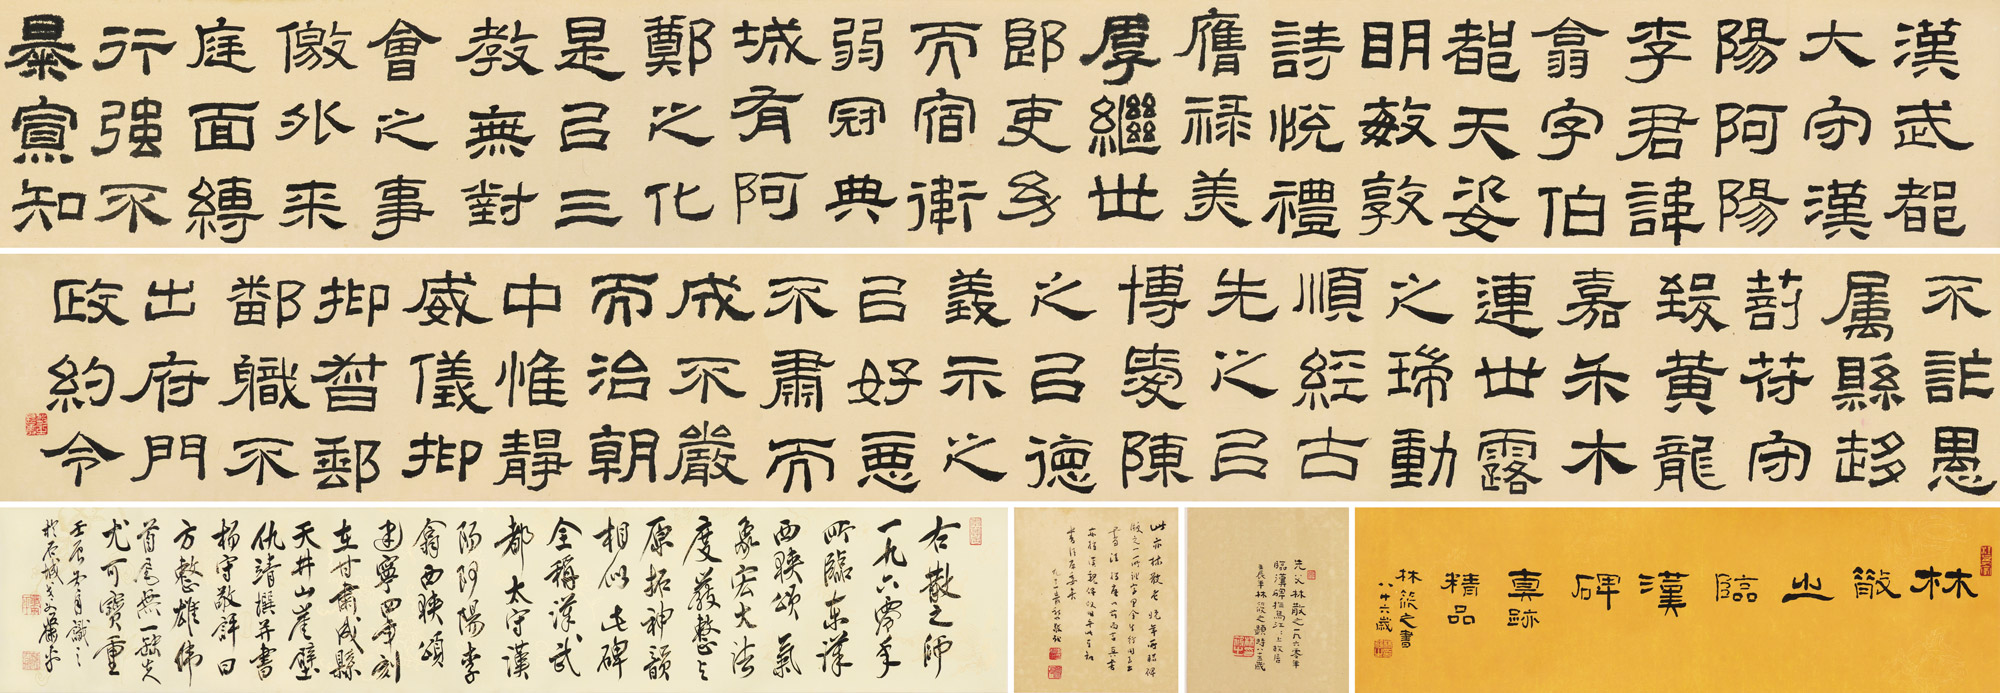 漢武都
大守漢
陽阿陽
李君諱
翕字伯
都天姿
明敏敦
詩悅禮
膺祿美
厚繼世
郎吏幼
而宿衛
弱冠典
城有阿
鄭之化
是㠯三
教無對
會之事
儌外来
庭面縛
行强不
暴寘知
不詐愚
属縣趍
苻守
致黄龍
嘉禾木
連世露
之瑞動
順經古
先之㠯
博愛陳
之㠯德
義示之
㠯好惡
不肅而
成不嚴
而治朝
中惟靜
威儀抑
抑督郵
鄰職不
出府門
政約令
右散之师
一九六零年
所臨東漢
西狹頌氣
象宏大法
度嚴整與
原拓神韻
相似此碑
全稱漢武
都太守漢
陽阿陽李
翕西狹頌
建寧四年刻
在甘肅成縣
天井山崖壁
仇靖撰并書
楊守敬評曰
方整雄偉
首尾無一缺失
尤可寶重
壬辰月識之
於石城
此亦林散老晚年所臨碑
先父林散之一九六零年
臨漢碑於烏江江上故居
壬辰年林筱之題時八十五歲
林散之臨漢碑真跡
精品
林筱之書
八十六歲